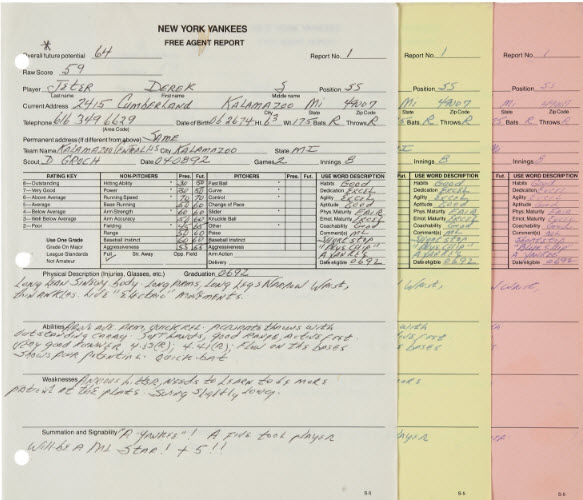 NEW YORK YANKEES
FREE AGENT REPORT
Overall future potential 64 Report No. 1
Raw Score 59
Player Jeter Derek S Position SS
Last name First name Middle name
Current Address 2415 Cumberland Kalamazoo Mi 49007
City State Zip Code
Telephone 616 349 6629 Date of Birth 062674 Ht. 63 Wt. 175 Bats R Throws R
(Area Code)
Permanent address (if different from above) Same
Team Name Kalamazoo Central HS Kalamazoo State MI
Scout D Groch Date 040892 Games 2 Innings 8
RATING KEY NON-PITCHERS Pres. Fut. PITCHERS Pres. Fut. USE WORD DESCRIPTION
8—Outstanding Hitting Ability Fast Ball Habits Good
7—Very Good Power Curve Dedication Excel
6—Above Average Running Speed Control Agility Excel
5—Average Base Running Change of Pace Aptitude Good
4—Below Average Arm Strength 60 60 Slider Phys. Maturity Fair
3—Well Below Average Arm Accuracy Knuckle Ball Emot. Maturity Excel
2—Poor Fielding Other Coachability Good
Range Poise Comment(s)
Use One Grade Baseball Instinct 60 60 Baseball Instinct Short Stop
Grade On Major Aggressiveness Aggressiveness "Blue Chip"
League Standards Pull Str. Away Opp. Field Arm Action A Yankee
Not Amateur Delivery Date eligible 0692
Physical Description (Injuries, Glasses, etc.) Graduation 0692
Long lean sinewy body. Long arms, long legs narrow waist,
thin ankles. Live "electric" movements.
Abilities arm, quick rel. accurate throws with
outstanding carry. Soft hands, good range, active feet.
Very good runner Flow on the bases
Shows pwr potential. Quick bat
Weaknesses Anxious hitter, needs to learn to be more
patient at the plate. Swing slightly long.
Summation and Signability "A Yankee"! A five tool player
Will be a ML Star! + 5!!
S-5
Report No. 1
Position SS
Mi 49007
State Zip Code
Bats R Throws R
Innings 8
USE WORD DESCRIPTION
Habits Good
Dedication Excel
Agility Excel
Aptitude Good
Phys. Maturity Fair
Emot. Maturity Excel
Coachability Good
Comment(s)
Short Stop
"Blue Chip"
A Yankee
Date eligible 0692
Waist,
with
feet.
bases
more
player
S-5
Report No. 1
Position SS
Mi 49007
State Zip Code
Bats R Throws R
Innings 8
USE WORD DESCRIPTION
Habits Good
Dedication Excel
Agility Excel
Aptitude Good
Phys. Maturity Fair
Emot. Maturity Excel
Coachability Good
Comment(s)
Short Stop
"Blue Chip"
A Yankee
Date eligible 0692
Waist,
S-5